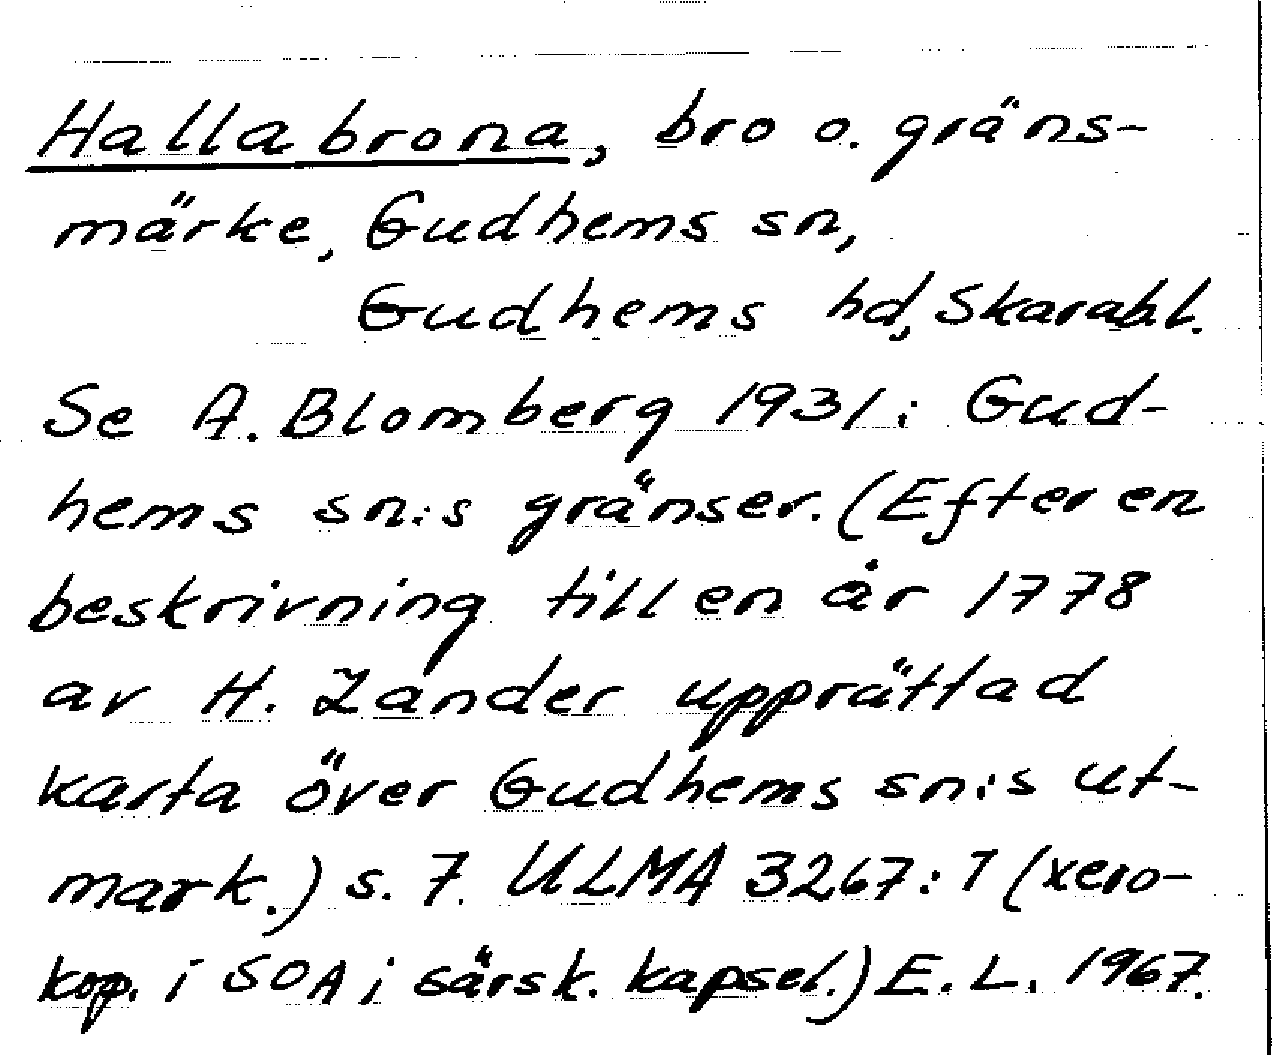 Hallabrona, bro o. gräns-
märke, Gudhems sn,
Gudhems hd, Skarabl.
Se A. Blomberg 1931: Gud-
hems sn:s gränser. (Efter en
beskrivning till en år 1778
av H. Zander upprättad
karta över Gudhems sn:s ut-
mark.) s. 7. ULMA 3267:1 (xero-
kop. i SOA i särsk. kapsel.) E. L. 1967.